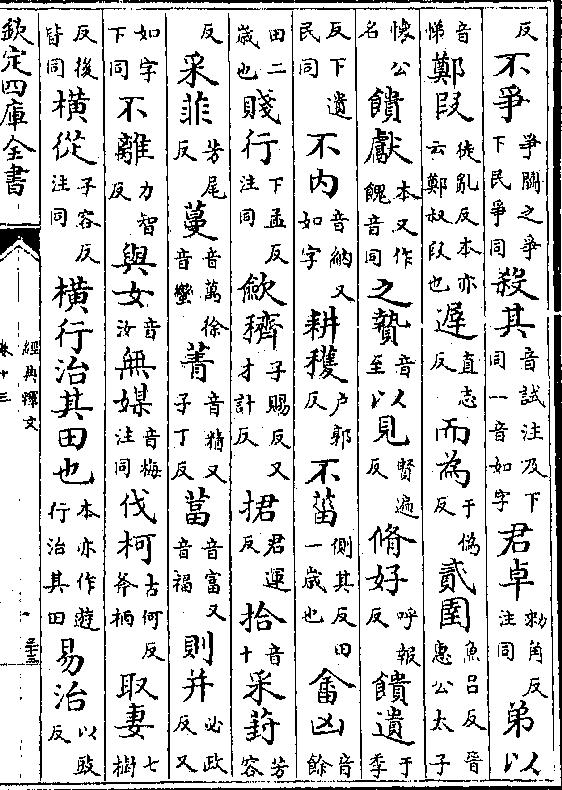 反不爭爭鬬之爭下民爭同殺其音試注及下同一音如字君卓勑角反注同弟以
音悌鄭段徒亂反本亦云鄭叔段也遲直志反而為于偽反貳圉魚呂反晉惠公太子
懷公名饋獻本又作餽音同之贄音至以見賢遍反脩好呼報反饋遺于季
反下遺民同不內音納又如字耕穫戶郭反不菑側其反田一歲也畬凶音餘
田二歲也賤行下孟反注同歛穧子賜反又才計反捃君運反拾音十采葑芳容
反采菲芳尾反蔓音萬徐音蠻菁音精又子丁反葍音富又音福則并必政反又
如字下同不離力智反與女音汝無媒音梅注同伐柯古何反斧柄取妻七樹
反後皆同橫從子容反注同橫行治其田也本亦作遊行治其田易治以豉反
欽定四庫全書
經典釋文
卷十三
三十三